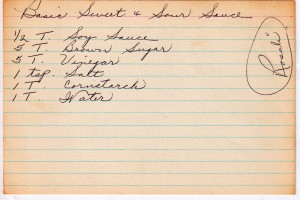 Basic Sweet & Sour Sauce
1/2 T. Soy Sauce
5 T. Brown Sugar
5 T. Vinegar
1 tsp. Salt
1 T. Cornstarch
1 T. Water